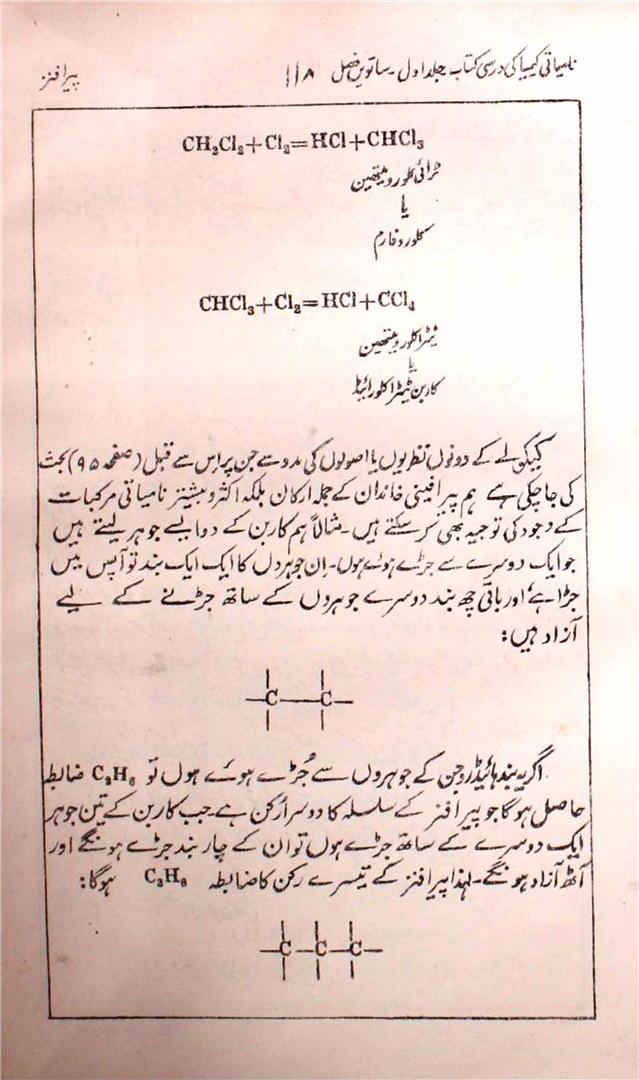 نامیاتی کیمیا کی درسی کتاب جلد اول۔ ساتویں فصل ۱۱۸ پیرافنز
CH₂Cl₂+Cl₂=HCl+CHCl₃
ٹرائی کلورو میتھین
یا
کلوروفارم
CHCl₃+Cl₂=HCl+CCl₄
ٹیٹرا کلورو میتھین
یا
کاربن ٹیٹرا کلورائیڈ
کیکولے کے دونوں نظریوں یا اصولوں کی مدد سے جن پر اِس سے قبل (صفحہ ۹۵) بحث
کی جا چکی ہے ہم پیرافینی خاندان کے جملہ ارکان بلکہ اکثر و بیشتر نامیاتی مرکبات
کے وجود کی توجیہ بھی کر سکتے ہیں۔ مثالاً ہم کاربن کے دو ایسے جوہر لیتے ہیں
جو ایک دوسرے سے جڑے ہوئے ہوں۔ اِن جوہروں کا ایک ایک بند تو آپس میں
جڑا ہے اور باقی چھ بند دوسرے جوہروں کے ساتھ جڑنے کے لیے
آزاد ہیں:
—C—C—
اگر یہ بند ہائیڈروجن کے جوہروں سے جُڑے ہوئے ہوں تو C₂H₆ ضابطہ
حاصل ہوگا جو پیرافنز کے سلسلہ کا دوسرا رکن ہے۔ جب کاربن کے تین جوہر
ایک دوسرے کے ساتھ جڑے ہوں تو ان کے چار بند جڑے ہونگے اور
آٹھ آزاد ہونگے۔ لہذا پیرافنز کے تیسرے رکن کا ضابطہ C₃H₈ ہوگا:
—C—C—C—